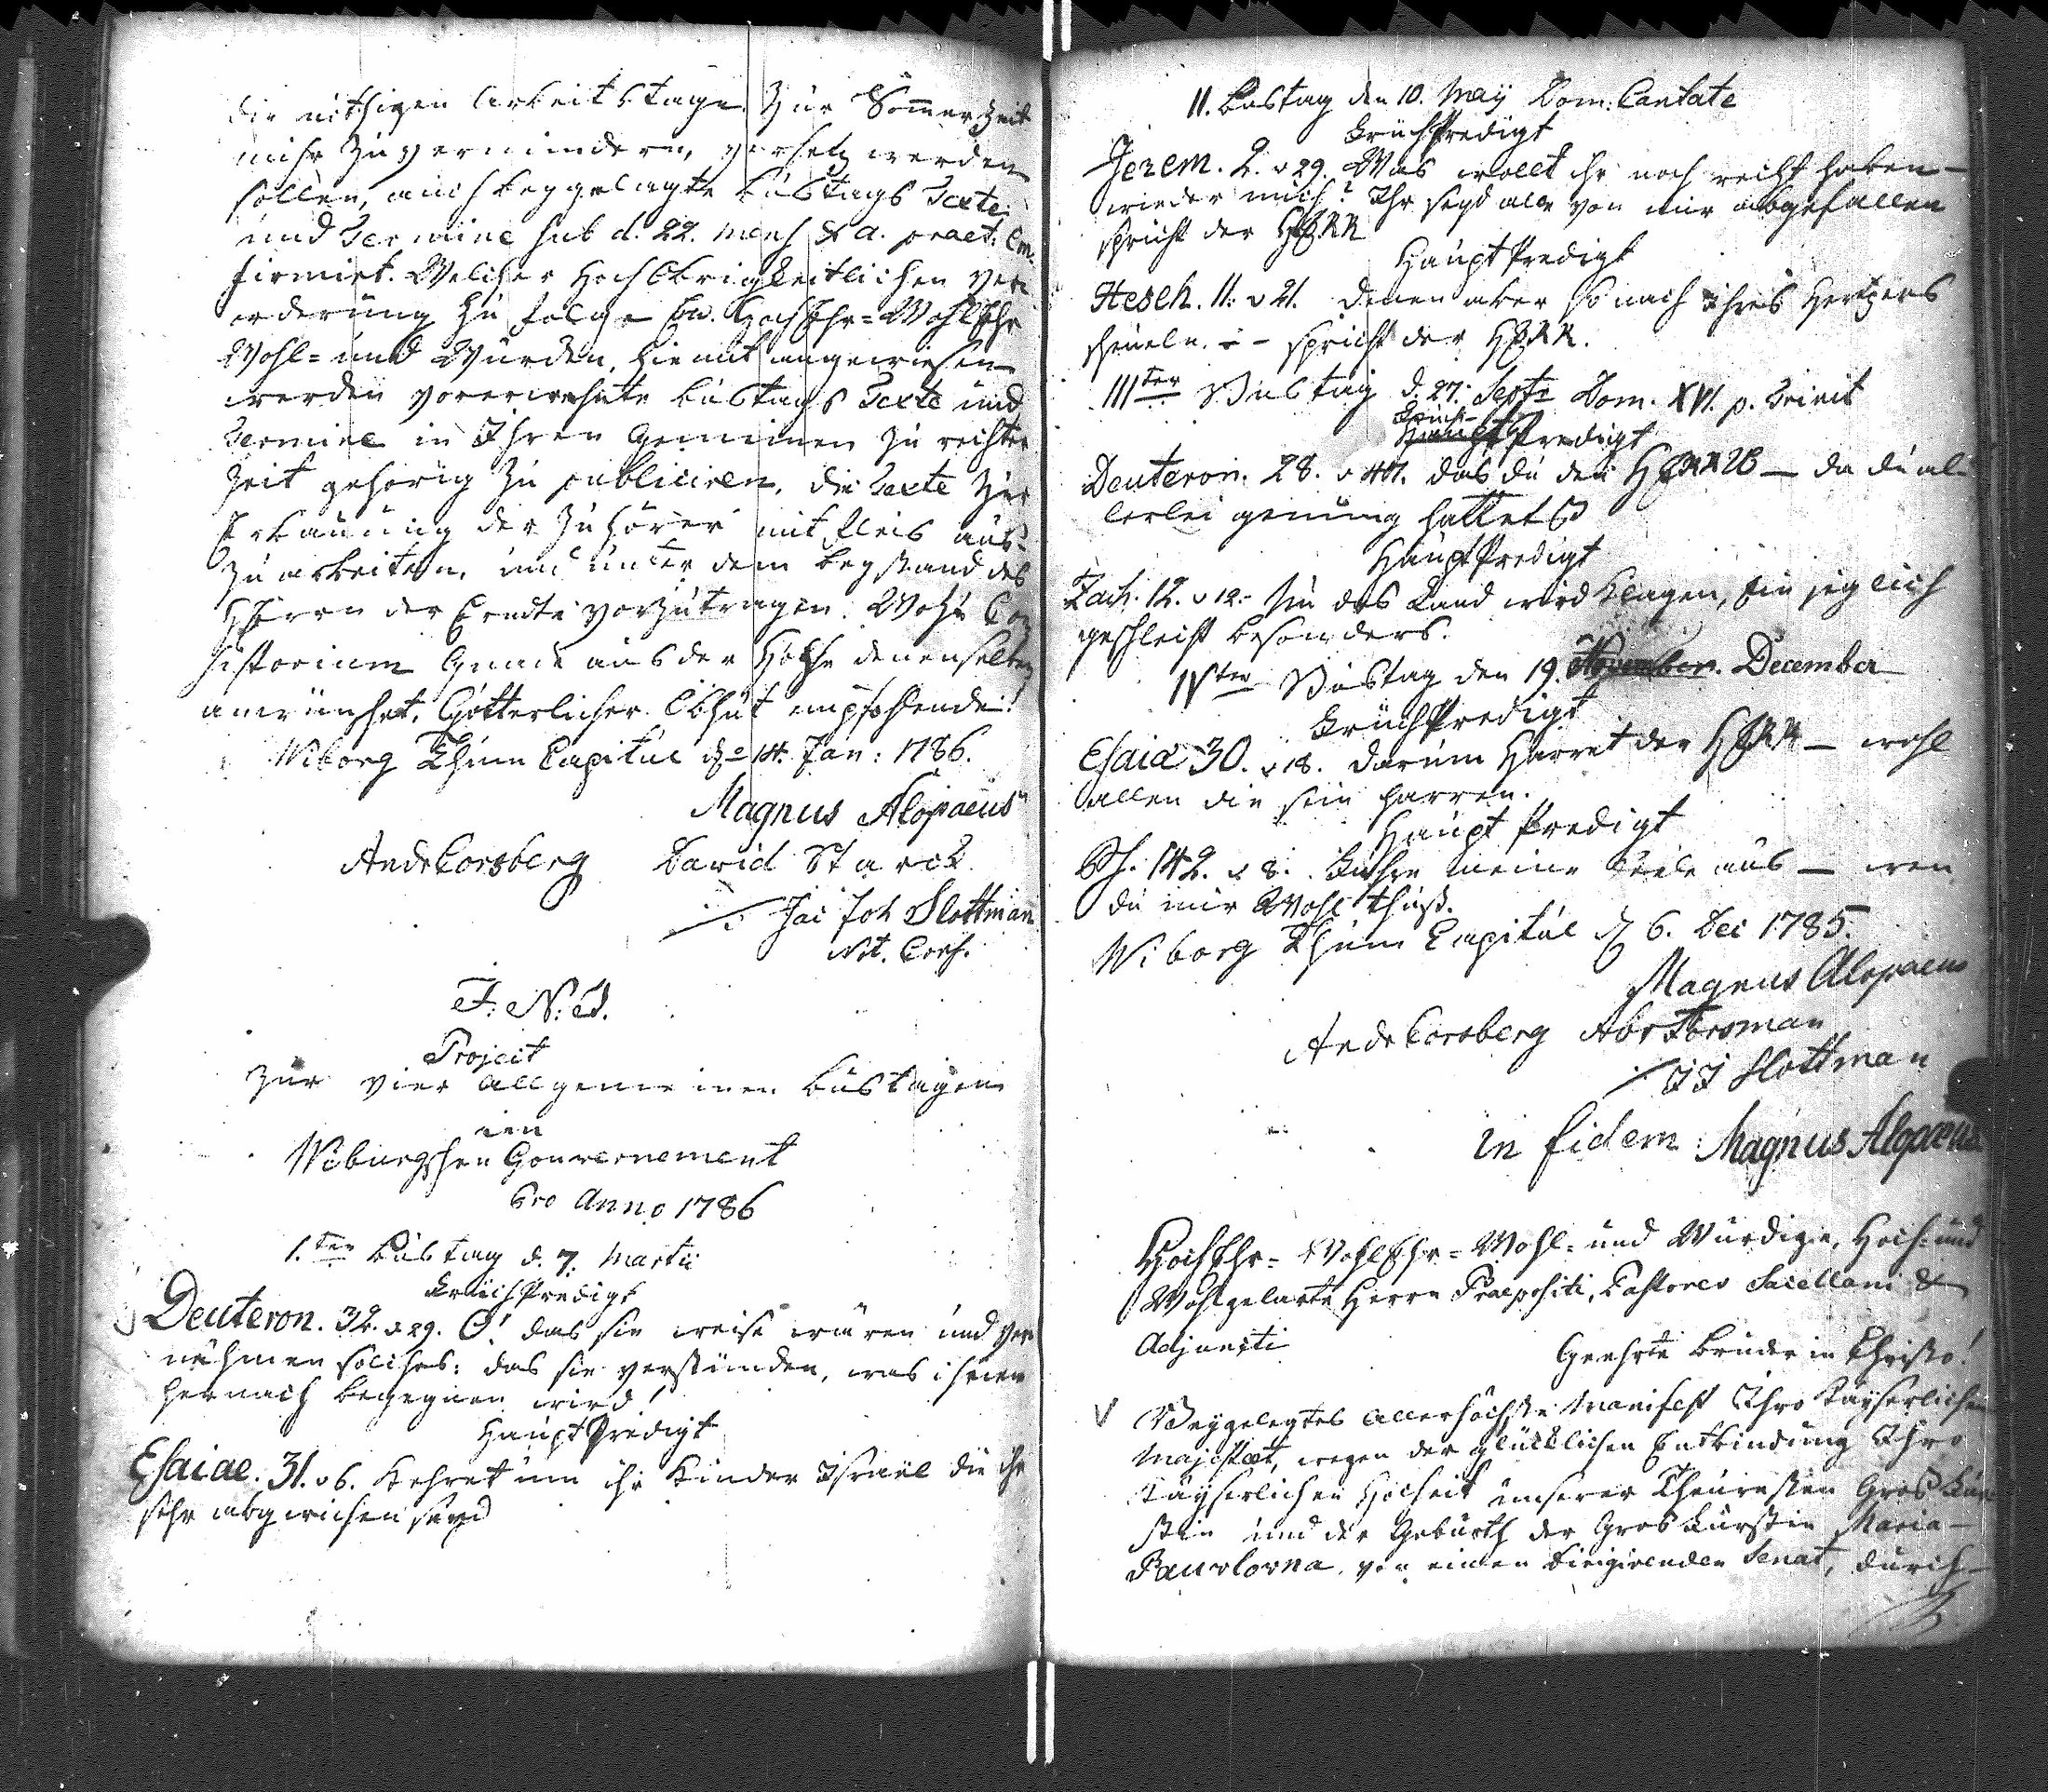 die nöthigen Arbeitstage zur Sommerzeit
nicht zu vermindern, versetz werden
sollen, auch beygelagte Bustags Texte
und Termine sub d. 22. mens & a. praet. Con-
firmirt. Welcher Hoch Obrigkeitlichen Ver
orderung zu folge Ew. HochEhr= WohlEhr
Wohl= und Würden, hiemit angewiesen
werden vorerwehnte Bustags Texte und
Termine in Ihren Gemeinen zu rechter
Zeit gehörig zu publiciren, die Texte zur
Erbauung der Zuhörer mit fleis aus-
zuarbeiten, und unter dem beystand des
HErrn der Erndte vorzutragen. Wohzu Con
sistorium Gnade aus der Höhe denenselben
anwünschet, Götterlicher Obhut empfohlende!
Wiborg Thum Capitul d. 14. Jan: 1786.
Magnus Alopaeus
And Corsberg David Starck
Jac Joh Slottman
Not. Cons.
I. N. J.
Project
zur vier allgemeinen Bustagen
im
Wiburgschen Gouvernement
Pro Anno 1786
1.ter Bustag d. 7. Martii
FrüchPredigt
Deuteron. 32. v 29. O! das sie weise wären und ver
nähmen solches: das sie verstünden, was ihnen
hernach begegnen wird!
HauptPredigt
Esaiae. 31. v 6. Kehret um ihr Kinder Israel die ihr
sehr abgewichen seyd
11. Bustag den 10. May Dom. Cantate
FrüchPredigt
Jerem. 2. v 29. Was wollt ihr noch recht haben —
wieder mich? Ihr seyd alle von mir abgefallen
spricht der HERR
HauptPredigt
Hesek. 11. v 21. denen aber so nach ihres Hertzens
scheueln. — spricht der HERR.
IIIter Bustag d. 27. Septr Dom. XVI. p. Trinit
Früch-
HauptPredigt
Deuteron. 28. v 47. das du den HERRN — da du al-
lerlei genung hattest
HauptPredigt
Zach. 12. v 12. Un das Land wird klagen, Ein jeglich
geschlecht besonders.
IVter Bustag den 19. November. December
FrüchPredigt
Esaiæ 30. v 18. Darum Harret der HERR — wohl
allen die sein harren.
Haupt Predigt
Ps. 142. v 8. Führe meine Seele aus — wen
du mir Wohl thust.
Wiborg Thum Capitul d. 6. Dec 1785.
Magnus Alopaeus
And Corsberg Abr Forsman
JJ Slottman
in fidem Magnus Alopaeus
HochEhr= WohlEhr= Wohl= und Würdige, Hoch= und
Wohlgelarte Herrn Praepositi, Pastores Sacellani &
Adjuncti
Geehrte Brüder in Christo!
V Beygelegtes Allerhöchste Manifest Ihro Kayserlichen
Majestæt, wegen der glücklichen Entbindung Ihro
Kayserlichen Hocheit unserer Theuresten Gros Für
stin und der Geburth der Gros Fürstin Maria —
Pauvlovna. von einen dirigirenden Senat, durch—